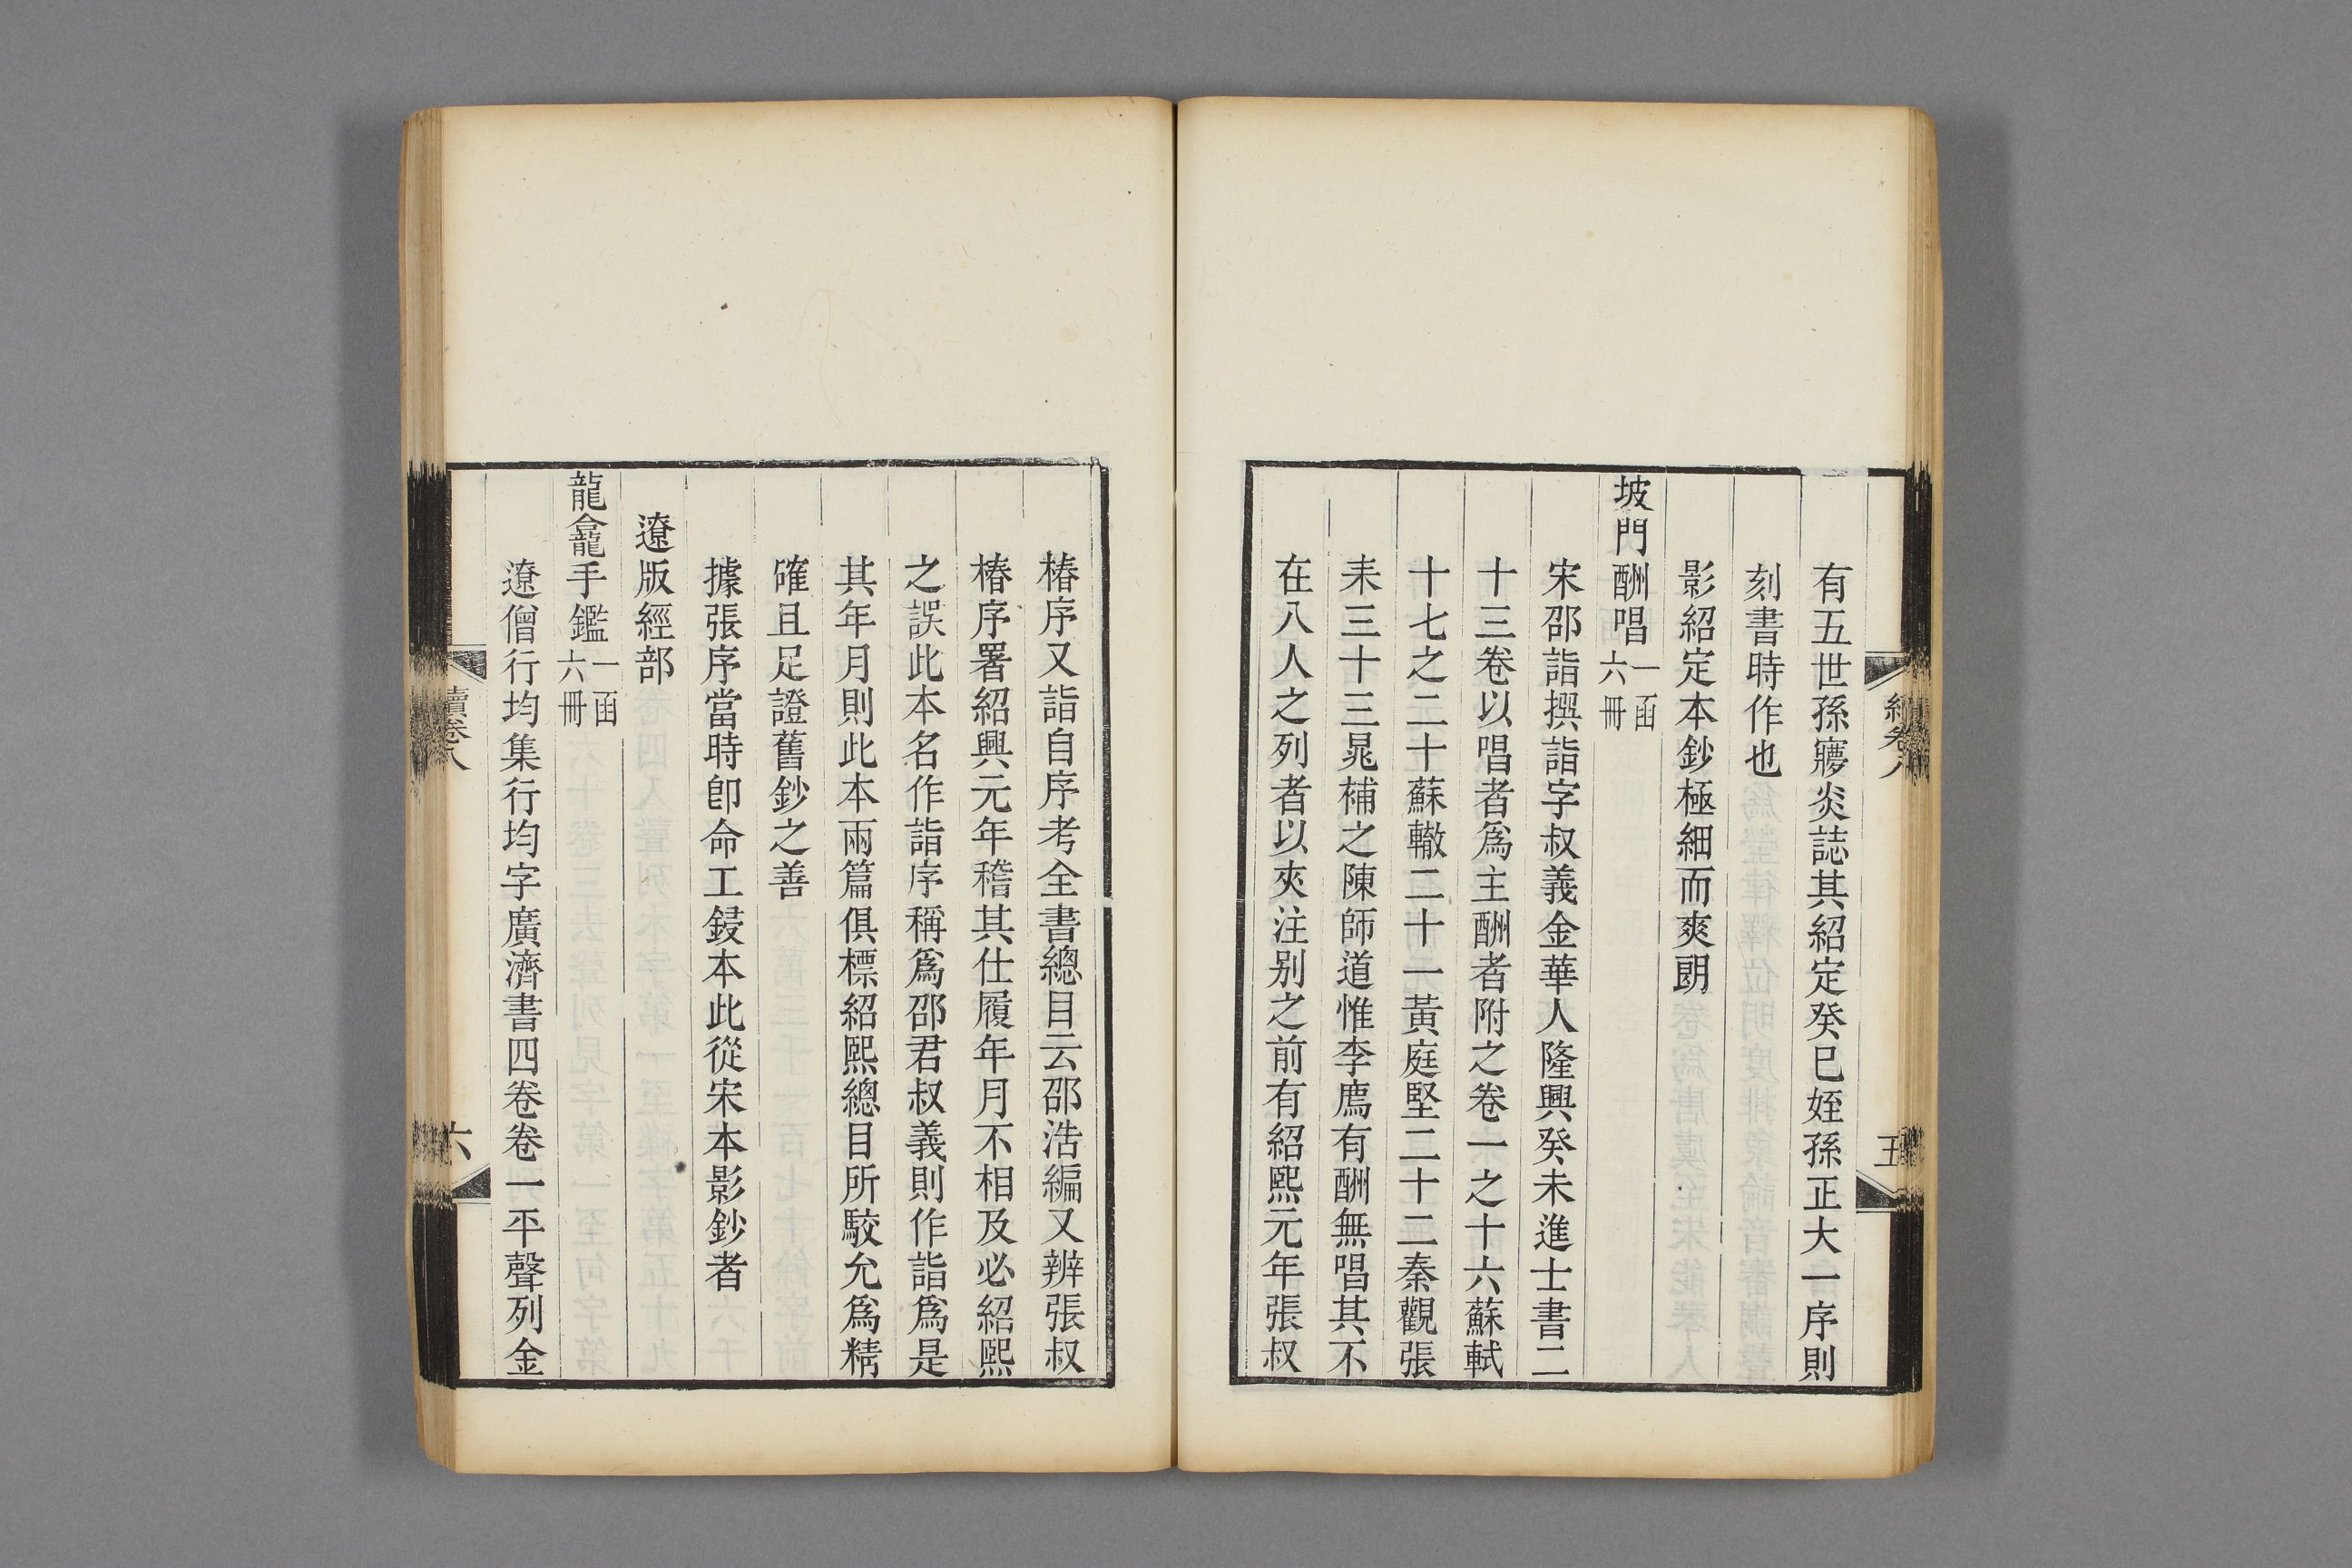 有五世孫㝱炎誌其紹定癸巳姪孫正大一序則
刻書時作也
影紹定本鈔極細而爽朗
坡門酬唱一函六冊
宋邵詣撰詣字叔義金華人隆興癸未進士書二
十三卷以唱者爲主酬者附之卷一之十六蘇軾
十七之二十蘇轍二十一黃庭堅二十二秦觀張
耒三十三晁補之陳師道惟李廌有酬無唱其不
在八人之列者以夾注别之前有紹熙元年張叔
續卷八
五
椿序又詣自序考全書總目云邵浩編又辨張叔
椿序署紹興元年稽其仕履年月不相及必紹熙
之誤此本名作詣序稱爲邵君叔義則作詣爲是
其年月則此本兩篇俱標紹熙總目所駮允爲精
確且足證舊鈔之善
據張序當時卽命工鋟本此從宋本影鈔者
遼版經部
龍龕手鑑一函六冊
遼僧行均集行均字廣濟書四卷卷一平聲列金
續卷八
六